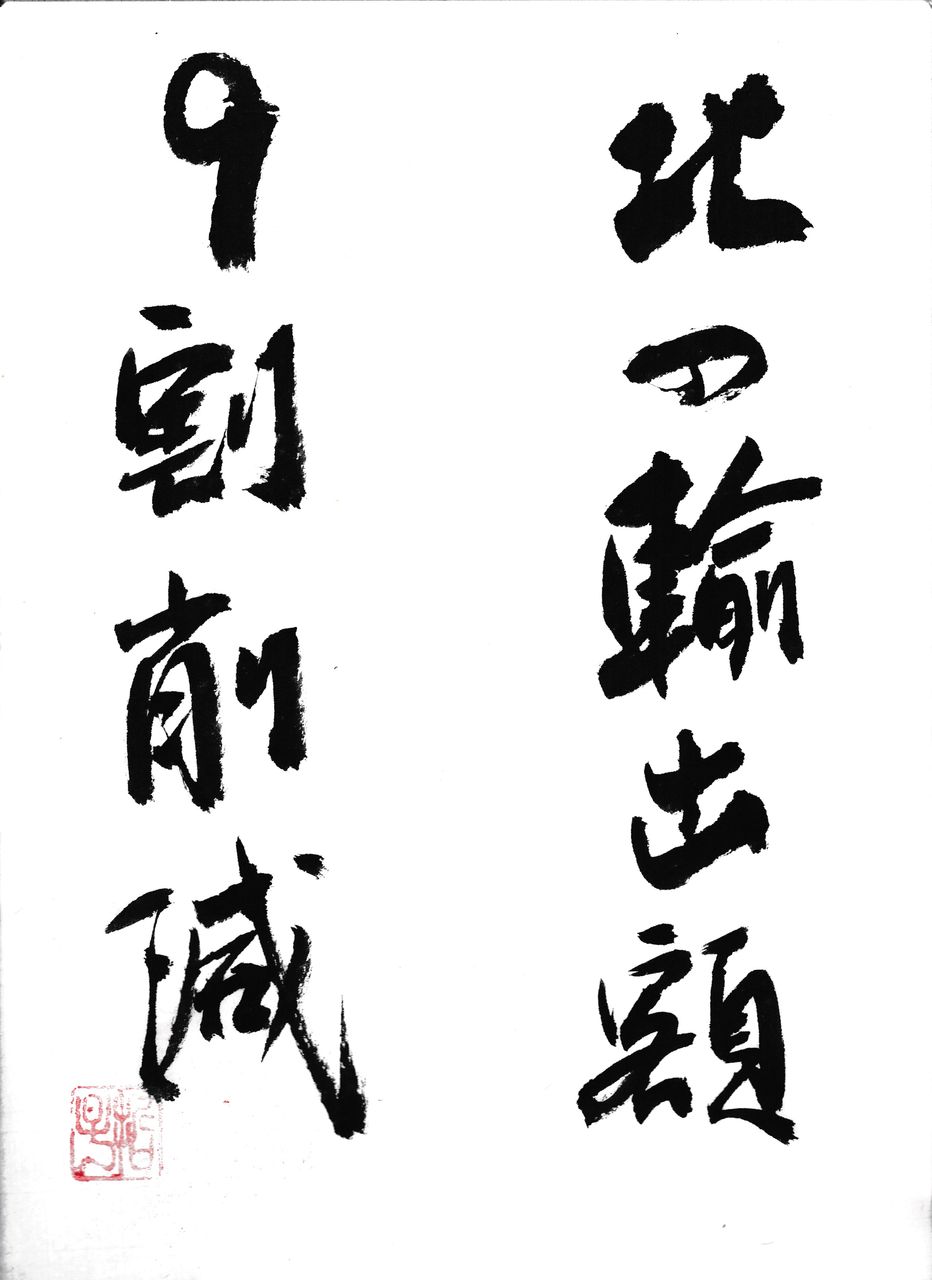 北の輸出額
9割削減